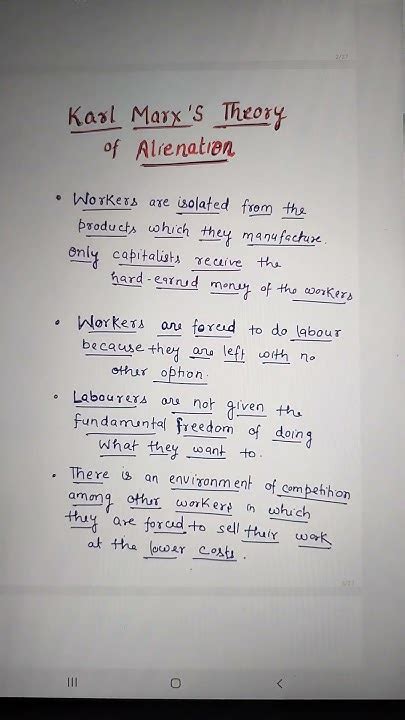 2/27
Karl Marx'S Theory
of Alienation
• Workers are isolated from the
products which they manufacture.
only capitalists receive the
hard-earned money of the workers
• Workers are forced to do labour
because they are left with no
other option.
• Labourers are not given the
fundamental freedom of doing
What they want to.
• There is an environment of competition
among other workers in which
they are forced to sell their work
at the lower costs.